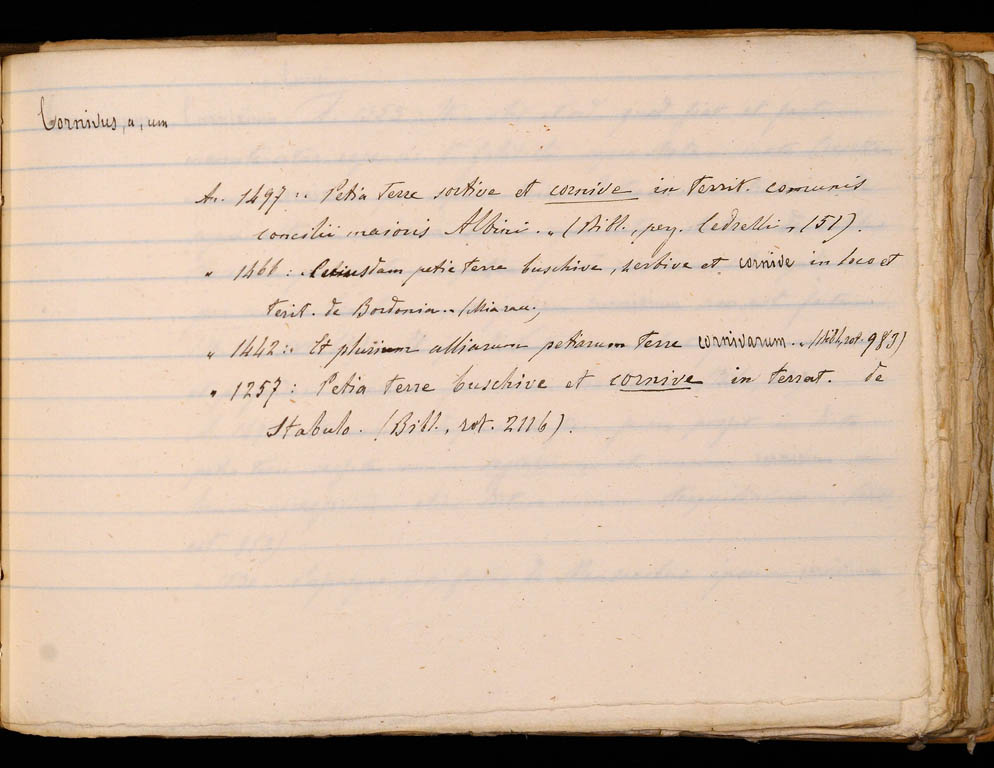 Cornivus, a, um
An. 1497: Petia terre sortive et cornive in territ. comunis
concilii maioris Albini. „ (Bibl., perg. Cedrelli, 151).
„ 1466: petie terre buschive, herbive et cornive in loco et
terit. de Bordonia.
„ 1442: Et plurium alliarum petiarum terre cornivarum. „ (Bibl, rot. 983)
„ 1257: Petia terre buschive et cornive in terrat. de
Stabulo. (Bibl., rot. 2116).